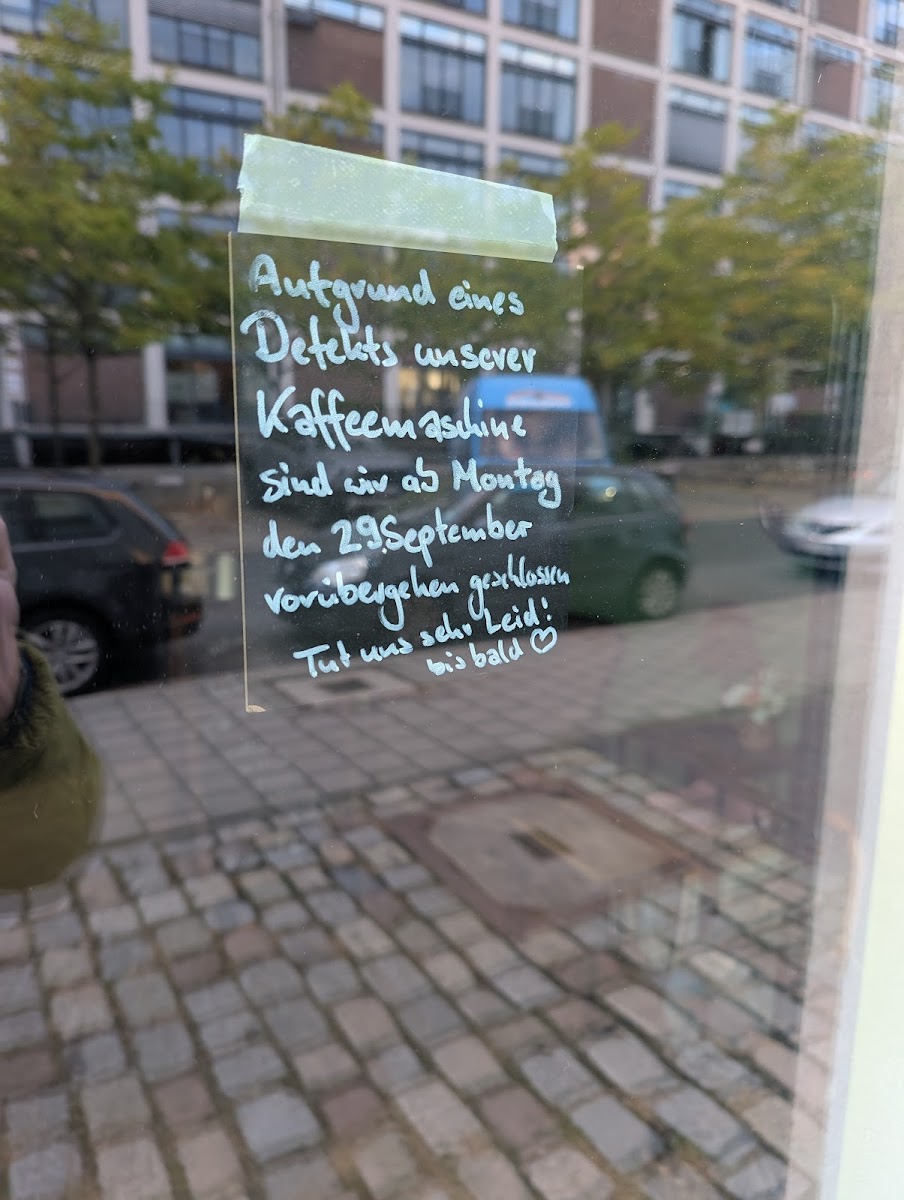 Aufgrund eines
Defekts unserer
Kaffeemaschine
sind wir ab Montag
den 29.September
vorübergehen geschlossen
Tut uns sehr Leid!
bis bald ♡